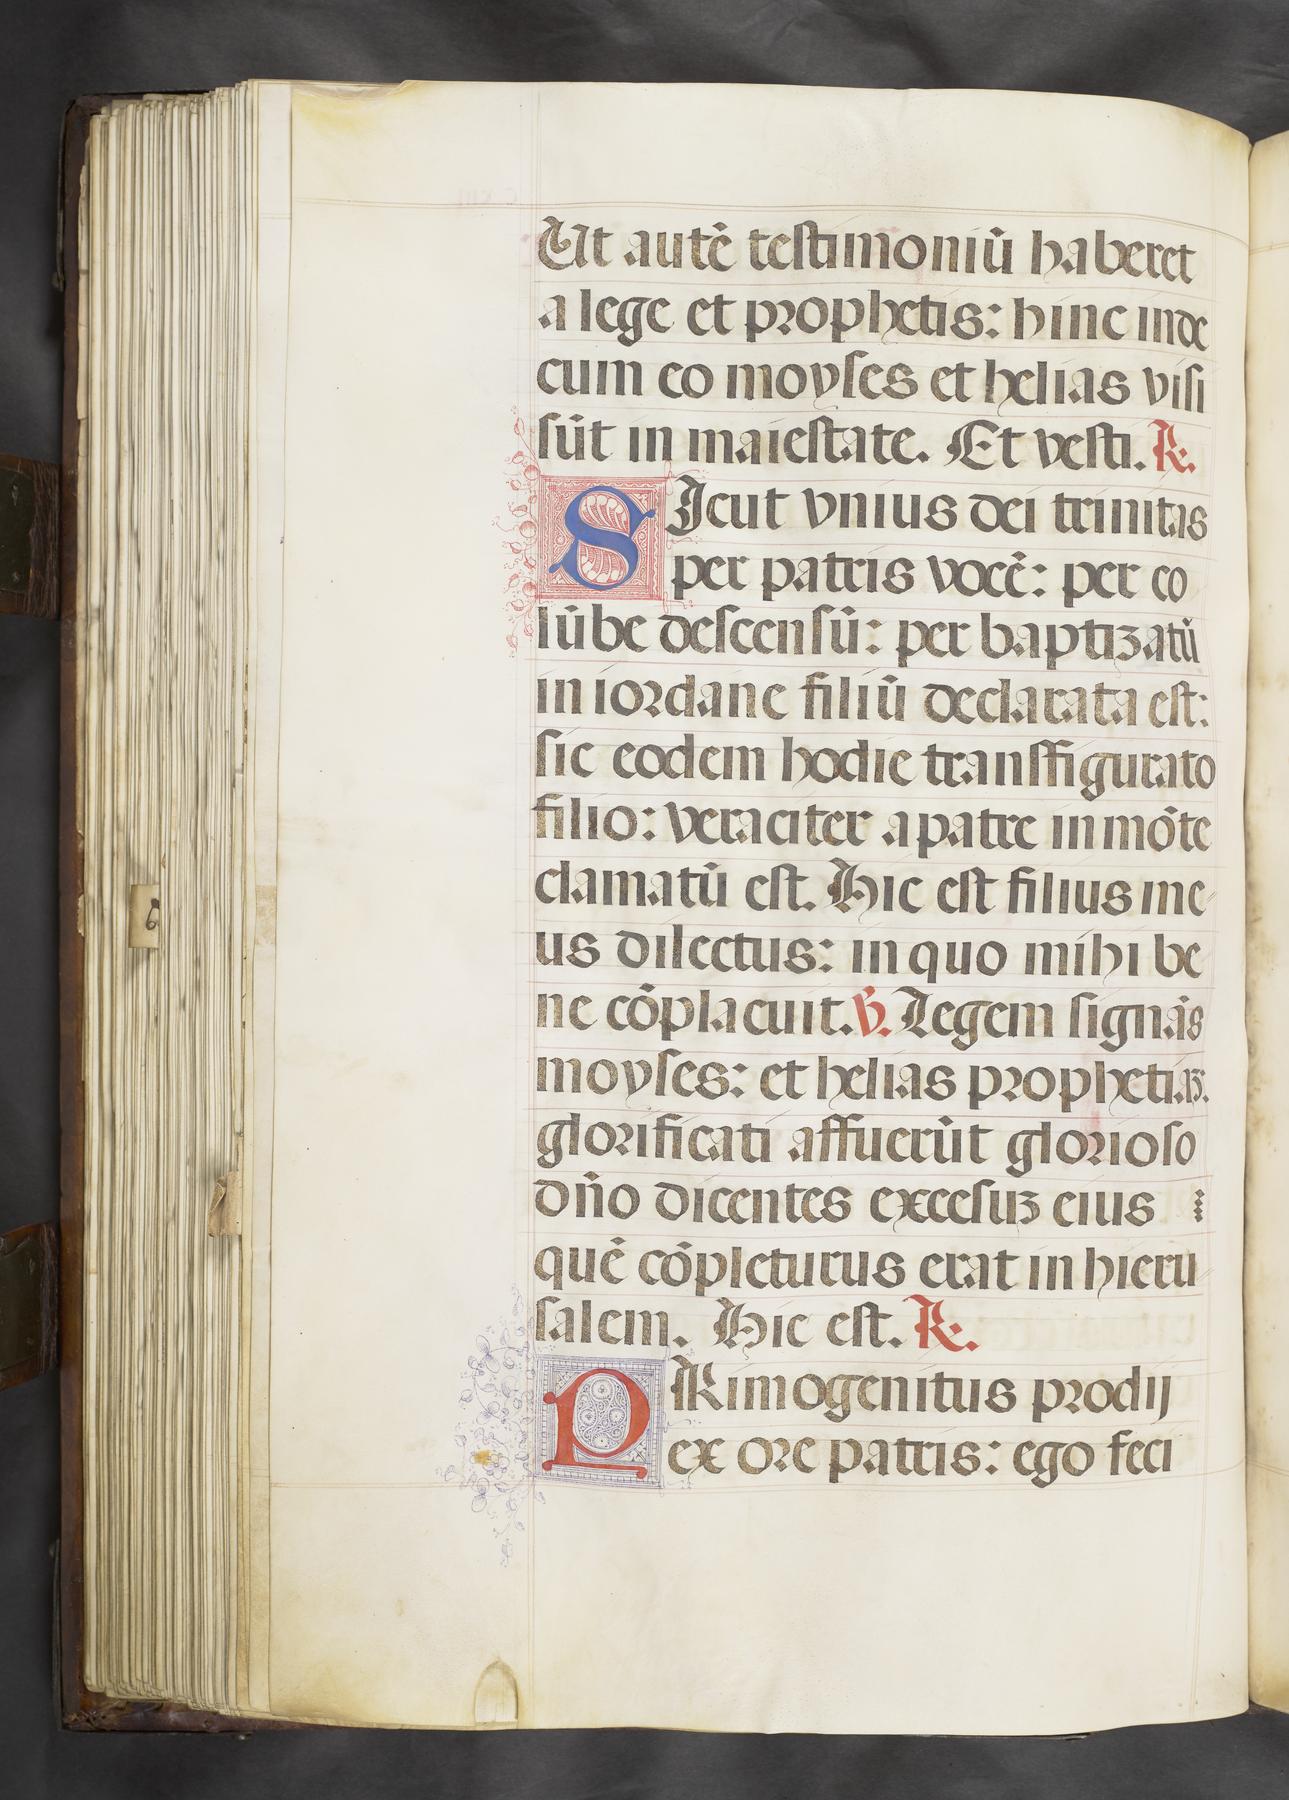 Ut autē testimoniū haberet
a lege et prophetis: hinc inde
cum eo moyses et helias visi
sūt in maiestate. Et vesti. R.
SIcut vnius dei trinitas
per patris vocē: per co
lūbe descensū: per baptizatū
in iordane filiū declarata est:
sic eodem hodie transffigurato
filio: veraciter a patre in mōte
clamatū est. Hic est filius me-
us dilectus: in quo mihi be
ne cōplacuit. V. Legem signās
moyses: et helias prophetiaʒ.
glorificati affuerūt glorioso
dño dicentes excesuʒ eius
quē cōpleturus erat in hieru-
salem. Hic est. R.
PRimogenitus prodij
ex ore patris: ego feci
6